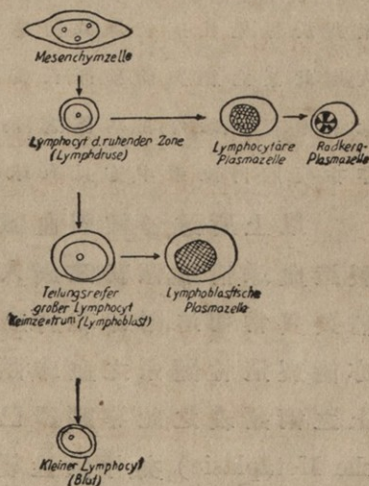 Mesenchymzelle
Lymphocyt d. ruhender Zone
(Lymphdruse)
Lymphocytäre
Plasmazelle
Radkern-
Plasmazelle
Teilungsreifer
großer Lymphocyt
Keimzentrum (Lymphoblast)
Lymphoblastische
Plasmazelle
Kleiner Lymphocyt
(Blut)